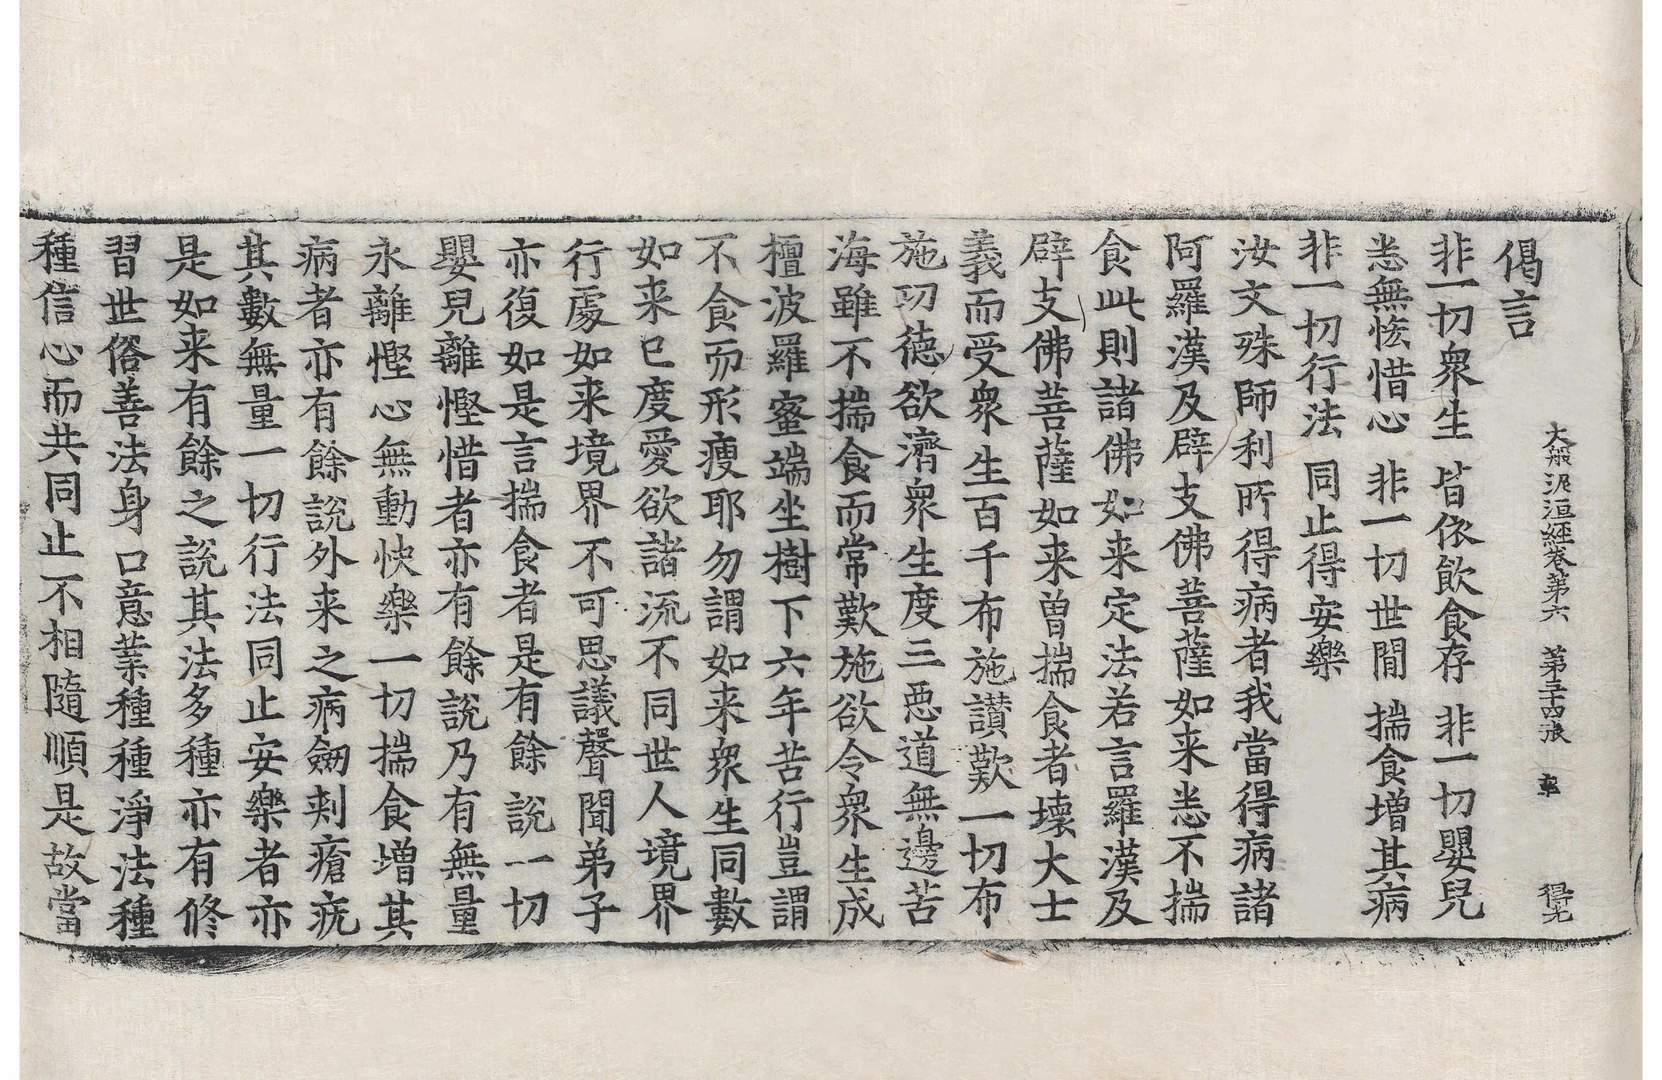 大般泥洹經卷第六　第二十四張　𨋢　得九
偈言
非一切衆生　皆依飲食存　非一切嬰兒
悉無恡惜心　非一切世間　揣食增其病
非一切行法　同止得安樂
汝文殊師利所得病者我當得病諸
阿羅漢及辟支佛菩薩如来悉不揣
食此則諸佛如来定法若言羅漢及
辟支佛菩薩如来曽揣食者壞大士
義而受衆生百千布施讃歎一切布
施功德欲濟衆生度三惡道無邊苦
海雖不揣食而常歎施欲令衆生成
檀波羅蜜端坐樹下六年苦行豈謂
不食而形瘦耶勿謂如来衆生同數
如来已度愛欲諸流不同世人境界
行處如来境界不可思議聲聞弟子
亦復如是言揣食者是有餘說一切
嬰兒離慳惜者亦有餘說乃有無量
永離慳心無動快樂一切揣食增其
病者亦有餘說外来之病劒刾瘡疣
其數無量一切行法同止安樂者亦
是如来有餘之說其法多種亦有修
習世俗善法身口意業種種淨法種
種信心而共同止不相隨順是故當